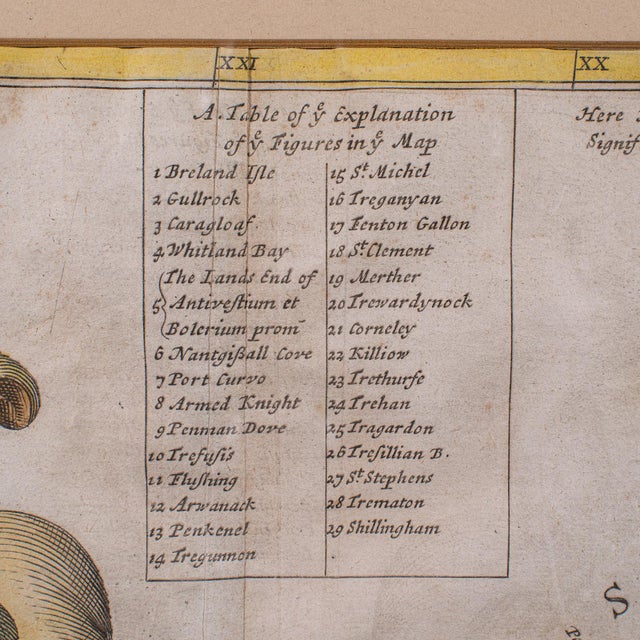 XXI
XX
A Table of yᵉ Explanation
of yᵉ Figures in yᵉ Map
1 Breland Iſle
2 Gullrock
3 Caragloaf
4 Whitland Bay
The Lands End of
5 Antiveſtium et
Bolerium prom
6 Nantgißall Cove
7 Port Curvo
8 Armed Knight
9 Penman Dove
10 Trefuſis
11 Fluſhing
12 Arwanack
13 Penkenel
14 Tregunnon
15 Sᵗ Michel
16 Treganyan
17 Fenton Gallon
18 Sᵗ Clement
19 Merther
20 Trewardynock
21 Corneley
22 Killiow
23 Trethurfe
24 Trehan
25 Tragardon
26 Treſillian B.
27 Sᵗ Stephens
28 Trematon
29 Shillingham
Here
Signif
S